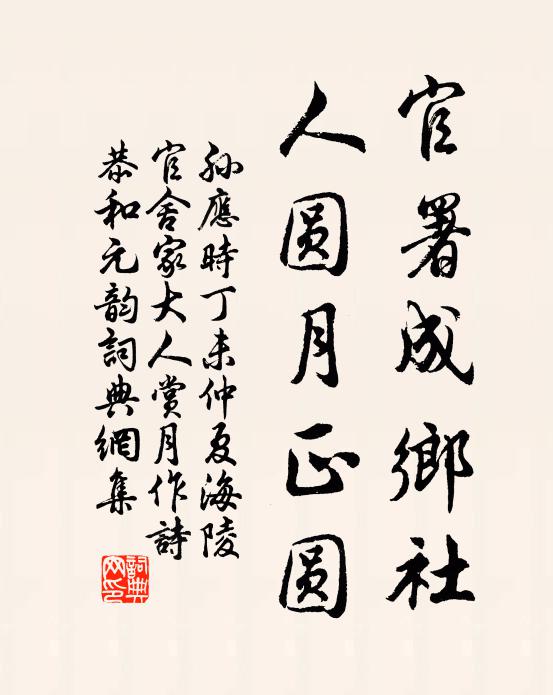 官署成鄉社
人圓月正圓
孫應時丁未仲夏海陵
官舍家大人賞月作詩
恭和元韵詞典網集
詞典网印